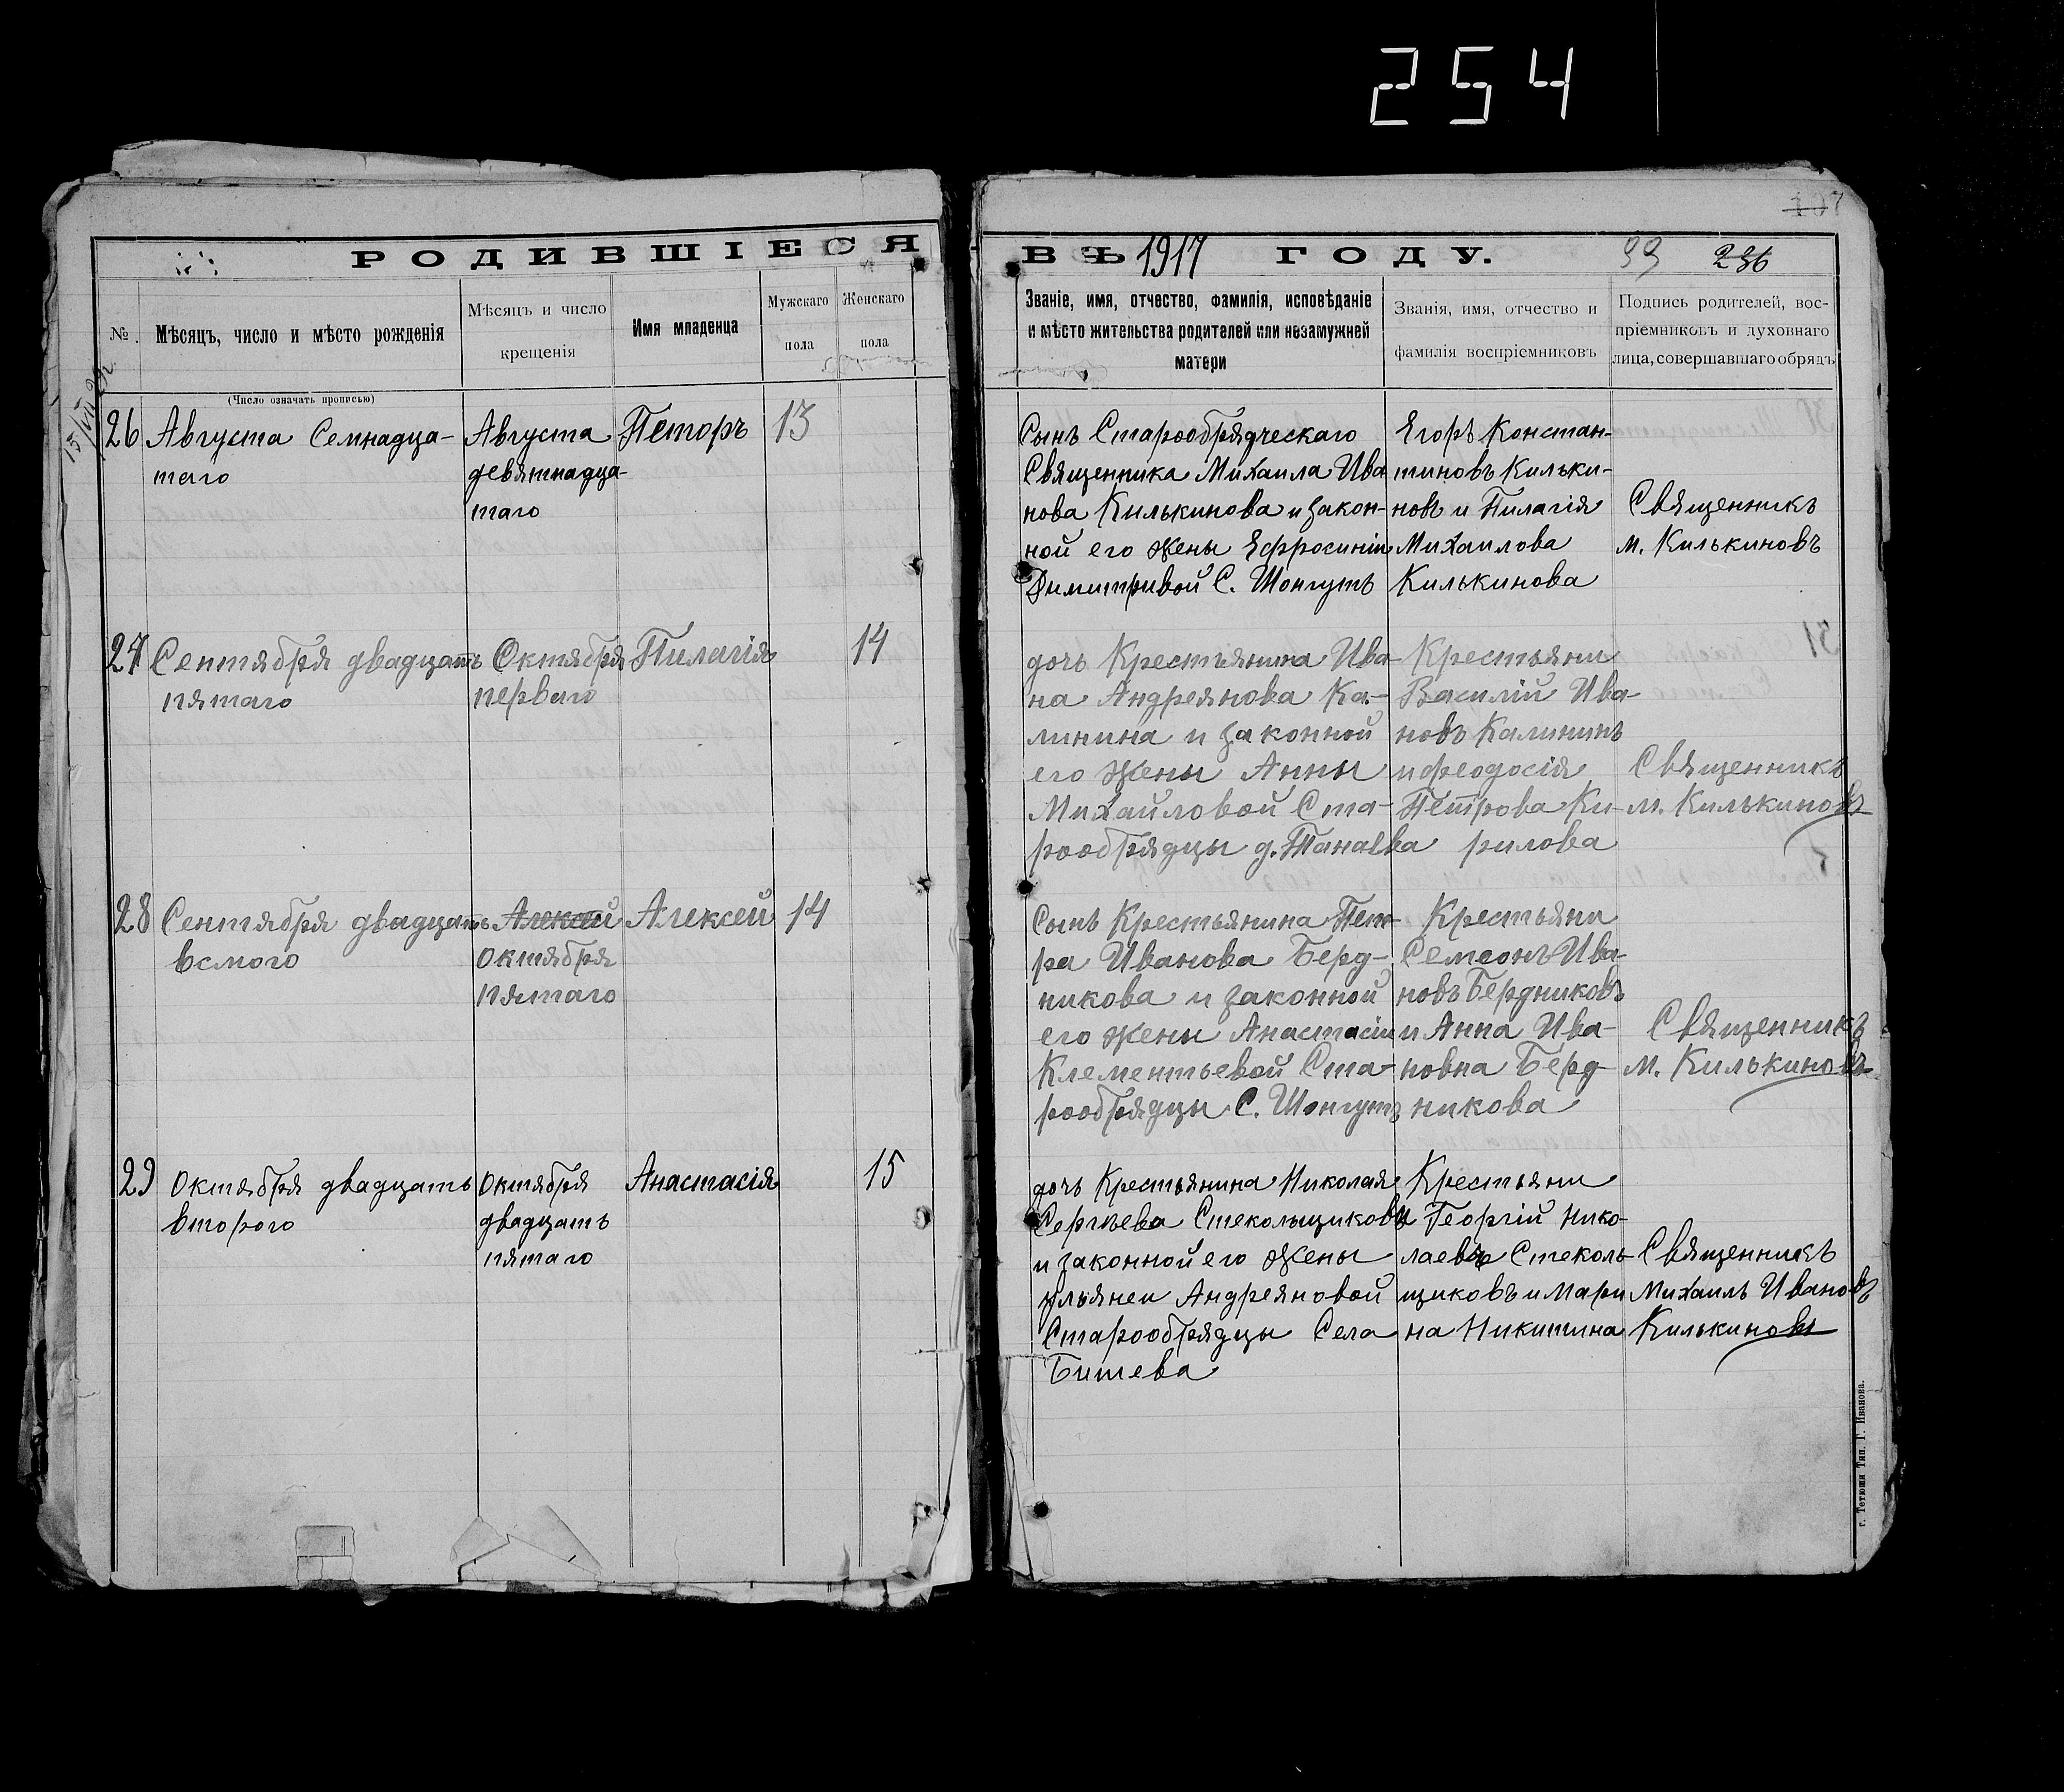 254
107
РОДИВШІЕСЯ
ВЪ 1917 ГОДУ.
99 236
№
Мѣсяцъ, число и мѣсто рожденія
Мѣсяцъ и число
крещенія
Имя младенца
Мужскаго
пола
Женскаго
пола
Званіе, имя, отчество, фамилія, исповѣданіе
и мѣсто жительства родителей или незамужней
матери
Званія, имя, отчество и
фамилія воспріемниковъ
Подпись родителей, вос-
пріемниковъ и духовнаго
лица, совершавшаго обрядъ
(Число означать прописью)
26
Августа Семнадца-
таго
Августа
девятнадца-
таго
Петоръ
13
Сынъ Старообрядческаго
Священника Михаила Ива
нова Килькинова и закон-
ной его жены Ефросиніи
Димитривой С. Шонгутъ
Егоръ Констан-
тиновъ Кильки-
новъ и Пилагія
Михаилова
Килькинова
Священникъ
м. Килькиновъ
27
Сентября двадцать
пятаго
Октября
перваго
Пилагія
14
дочь Крестьянина Ива-
на Андреянова Ка-
линина и законной
его жены Анны
Михайловой Ста-
рообрядцы д. Танаева
Крестьяни
Василій Ива-
новъ Калининъ
и феодосія
Петрова Ки-
рилова
Священникъ
м. Килькиновъ
28
Сентября двадцать
всмого
Алексей
Октября
пятаго
Алексей
14
Сынъ Крестьянина Пет-
ра Иванова Берд-
никова и законной
его жены Анастасіи
Клементьевой Ста-
рообрядцы С. Шонгутъ
Крестьяни
Семеонъ Ива-
новъ Бердниковъ
и Анна Ива-
новна Берд-
никова
Священникъ
м. Килькиновъ
29
Октября двадцать
второго
Октября
двадцать
пятаго
Анастасія
15
дочь Крестьянина Николая
Сергѣева Стекольщикова
и законной его жены
ульянеи Андреяновой
Старообрядцы Села
Бишева
Крестьяни
Георгій Нико-
лаевъ Стеколь-
щиковъ и Мари
на Никитина
Священникъ
Михаилъ Ивановъ
Килькиновъ
г. Тетюши Тип. Г. Иванова.